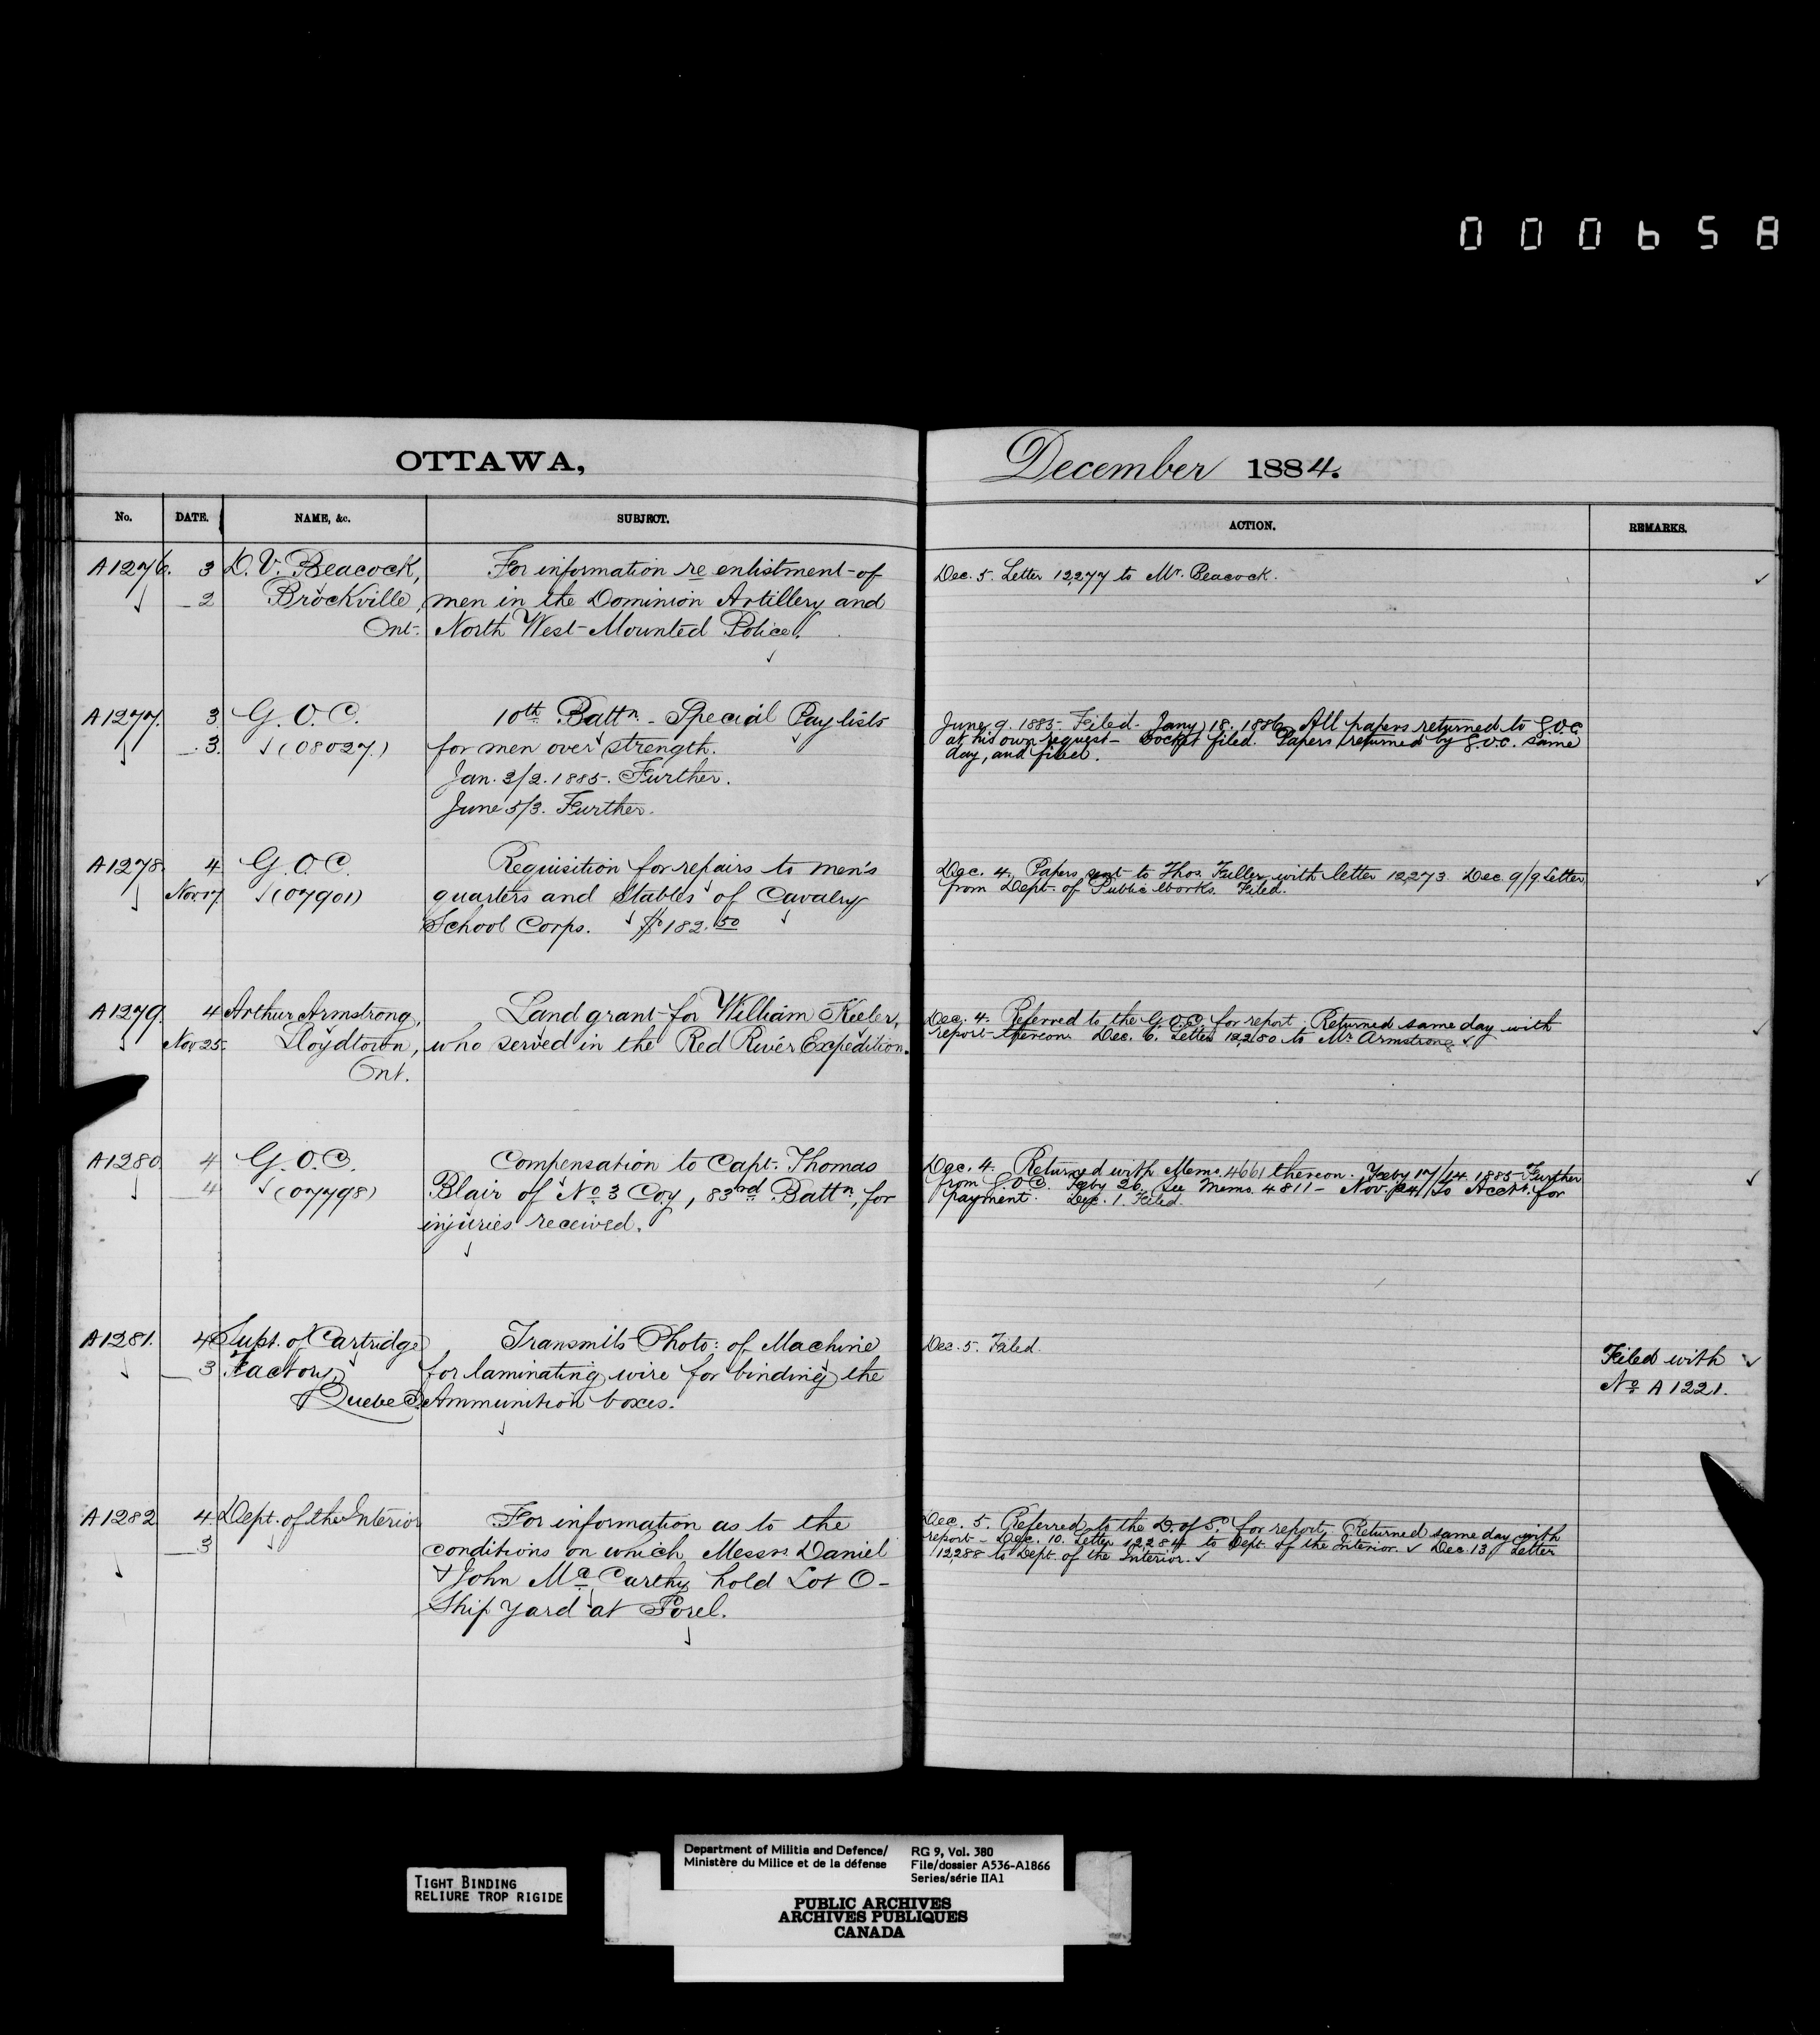 000658
OTTAWA,
December 1884.
No. DATE. NAME, &c. SUBJECT. ACTION. REMARKS.
A1276. 3 D. V. Beacock, For information re enlistment of
2 Brockville, men in the Dominion Artillery and
Ont. North West Mounted Police.
Dec. 5. Letter 12,277 to Mr. Beacock.
A1277. 3 G. O. C. 10th Battn. - Special Pay lists
3. (08027.) for men over strength.
Jan. 3/2. 1885. Further.
June 5/3. Further.
June 9. 1885- Filed. Jany 18. 1886. All papers returned to G.O.C.
at his own request - Docket filed. Papers returned by G.O.C. same
day, and filed.
A1278. 4 G. O. C. Requisition for repairs to men's
Nov. 17 (07901) quarters and Stables of Cavalry
School Corps. $182.50
Dec. 4. Papers sent to Thos. Fuller with letter 12,273. Dec. 9/9 Letter
from Dept. of Public Works. Filed.
A1279. 4 Arthur Armstrong, Land grant for William Keeler,
Nov 25. Lloydtown, who served in the Red River Expedition.
Ont.
Dec. 4. Referred to the G.O.C. for report. Returned same day with
report thereon. Dec. 6. Letter 12,280 to Mr Armstrong
A1280 4 G. O. C. Compensation to Capt. Thomas
4 (07798) Blair of No 3 Coy, 83rd Battn, for
injuries received.
Dec. 4. Returned with Memo. 4661 thereon. Feby 17/14. 1885 Further
from G.O.C. Feby 26. See Memo. 4811 - Nov. 24/ To Acct. for
payment. Dec. 1. Filed.
A1281. 4 Supt. of Cartridge Transmits Photo: of Machine
3 Factory, for laminating wire for binding the
Quebec. Ammunition boxes.
Dec. 5. Filed.
Filed with
No A 1221.
A1282 4. Dept. of the Interior For information as to the
3 conditions on which Messrs Daniel
& John McCarthy hold Lot O-
Ship Yard at Sorel.
Dec. 5. Referred to the D. of S. for report. Returned same day with
report - Dec. 10. Letter 12,284 to Dept. of the Interior. Dec. 13 Letter
12,288 to Dept. of the Interior.
TIGHT BINDING
RELIURE TROP RIGIDE
Department of Militia and Defence/
Ministère du Milice et de la défense
RG 9, Vol. 380
File/dossier A536-A1866
Series/série IIA1
PUBLIC ARCHIVES
ARCHIVES PUBLIQUES
CANADA